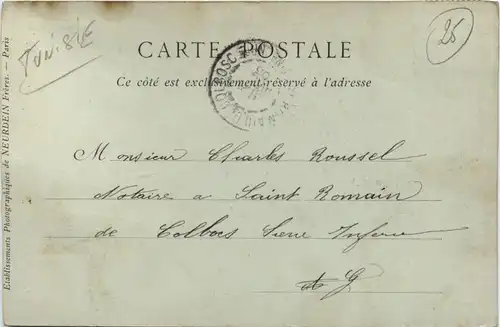 TUNISIE
25
CARTE POSTALE
Ce côté est exclusivement réservé à l'adresse
Monsieur Charles Roussel
Notaire a Saint Romain
de Colbocs Seine Infere
Etablissements Photographiques de NEURDEIN Frères. — Paris